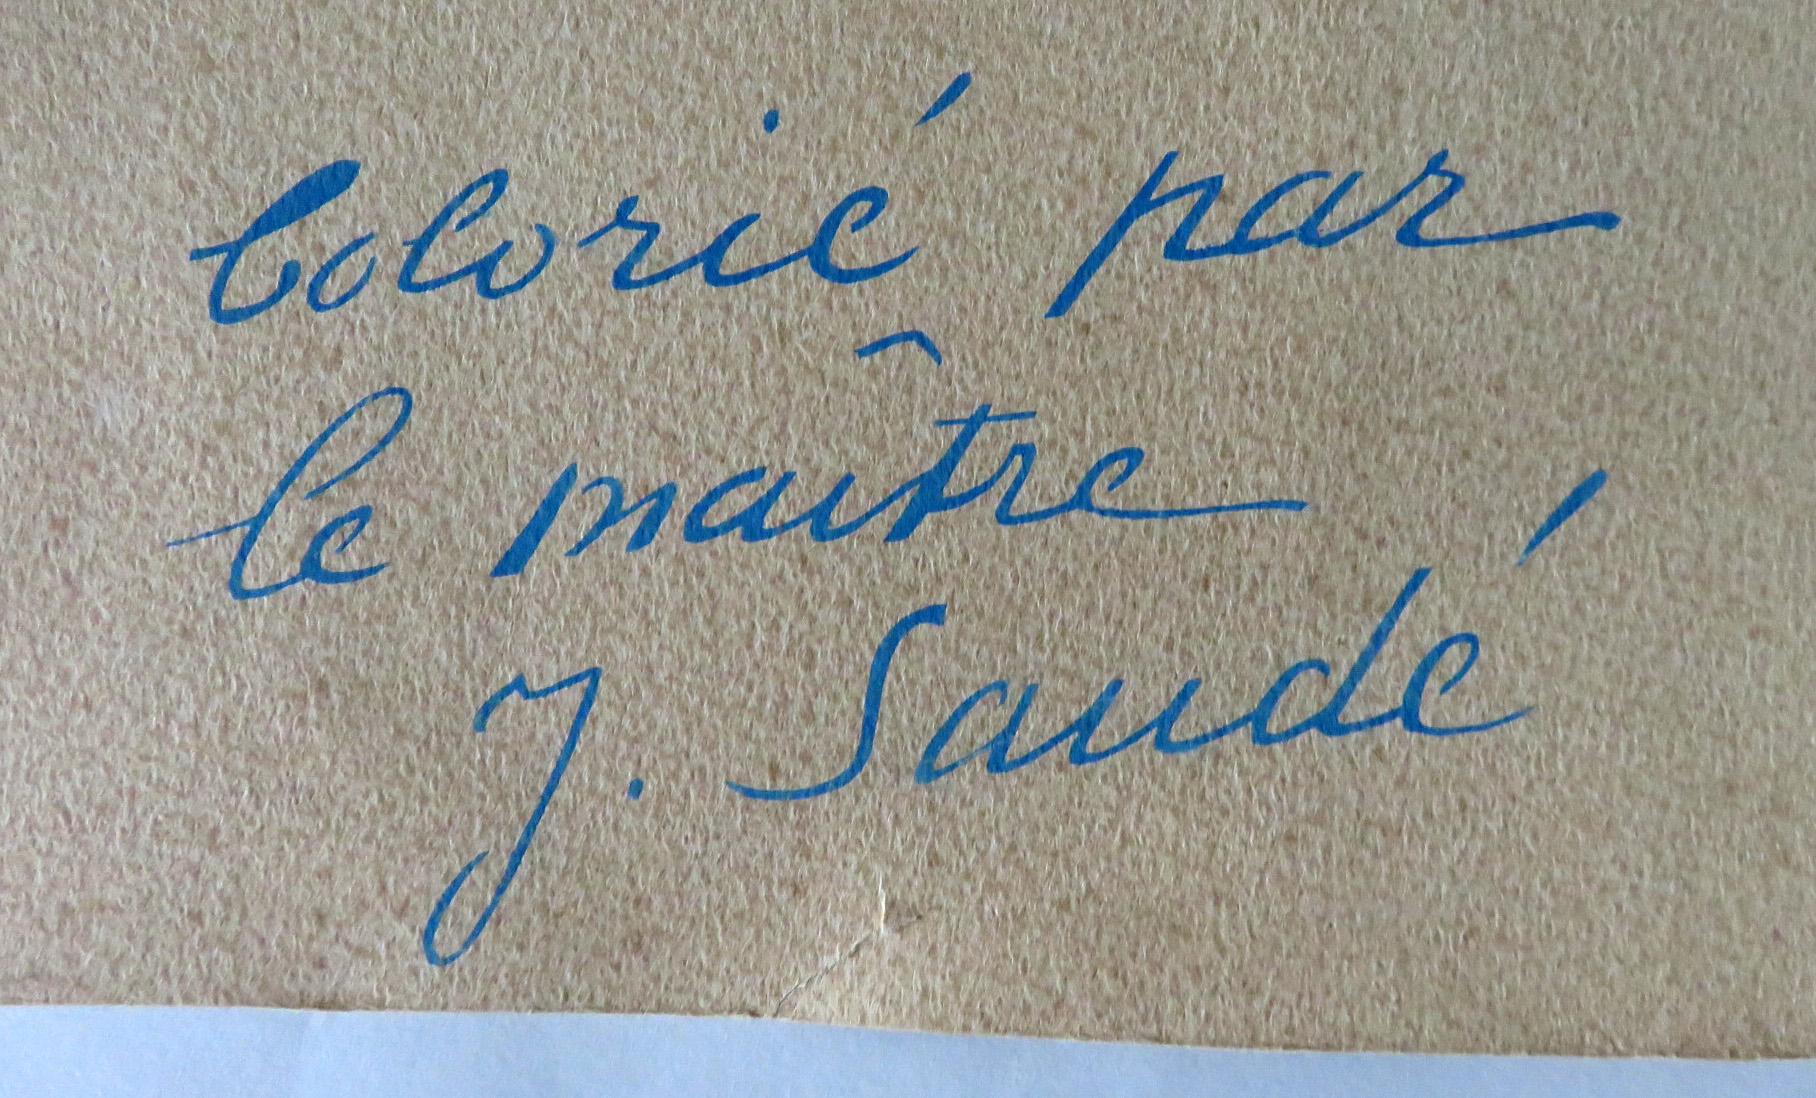 Colorié par
le maître
J. Saudé